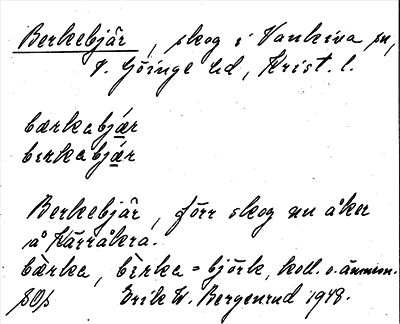 Berkebjär, skog i Vankiva sn,
V. Göinge hd, Krist. l.
bærkabjǽr
bɪrkabjǽr
Berkebjär, förr skog nu åker
å Kärråkra.
bæ̀rka, bɪ̀rka = björk, koll. o. ämnesn.
Erik W. Bergenrud 1948.